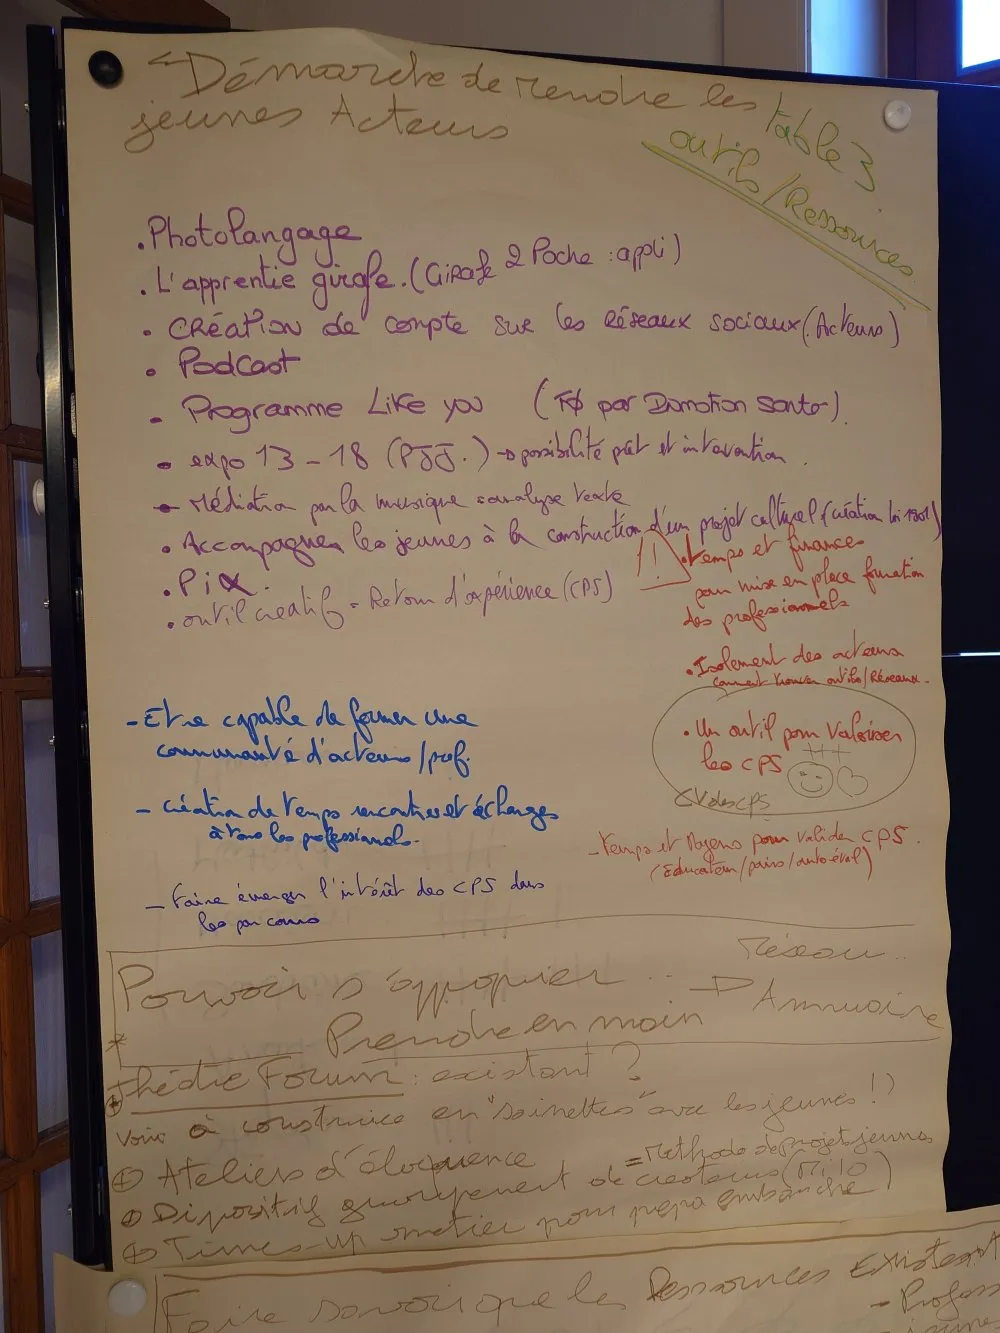 Démarche de rendre les
jeunes Acteurs
table 3
outils/Ressources
. Photolangage
. L'apprentie girafe. (Girafe 2 Poche : appli)
. CRéATION de compte sur les Réseaux sociaux (Acteurs)
. Podcast
. Programme Like you (par Promotion Santé).
- expo 13-18 (PJJ.) → possibilité prêt et intervention.
- Médiation par la musique analyse texte
. Accompagner les jeunes à la construction d'un projet culturel (création loi 1901)
. Pix.
. outil créatif = Retour d'expérience (CPS)
!! . temps et finance
pour mise en place formation
des professionnels
. Isolement des acteurs
comment trouver outils/Réseaux.
. Un outil pour Valoriser
les CPS
+++
CV des CPS
- temps et Moyens pour valider CPS.
(Educateur/pairs/auto éval)
- Etre capable de former une
communauté d'acteurs/prof.
- Création de temps rencontres et échanges
à tous les professionnels.
- Faire émerger l'intérêt des CPS dans
les parcours
Pouvoir s'approprier ..
Réseau ..
→ Annuaire
* Prendre en main
+ Théâtre Forum : existant ?
voir à construire en "sainettes" avec les jeunes !)
+ Ateliers d'éloquence
= Méthode de projets jeunes
+ Dispositif groupement de créateurs (Milo)
+ Times-up métier pour prépa embauche
Faire savoir que les Ressources Existent
- Profess